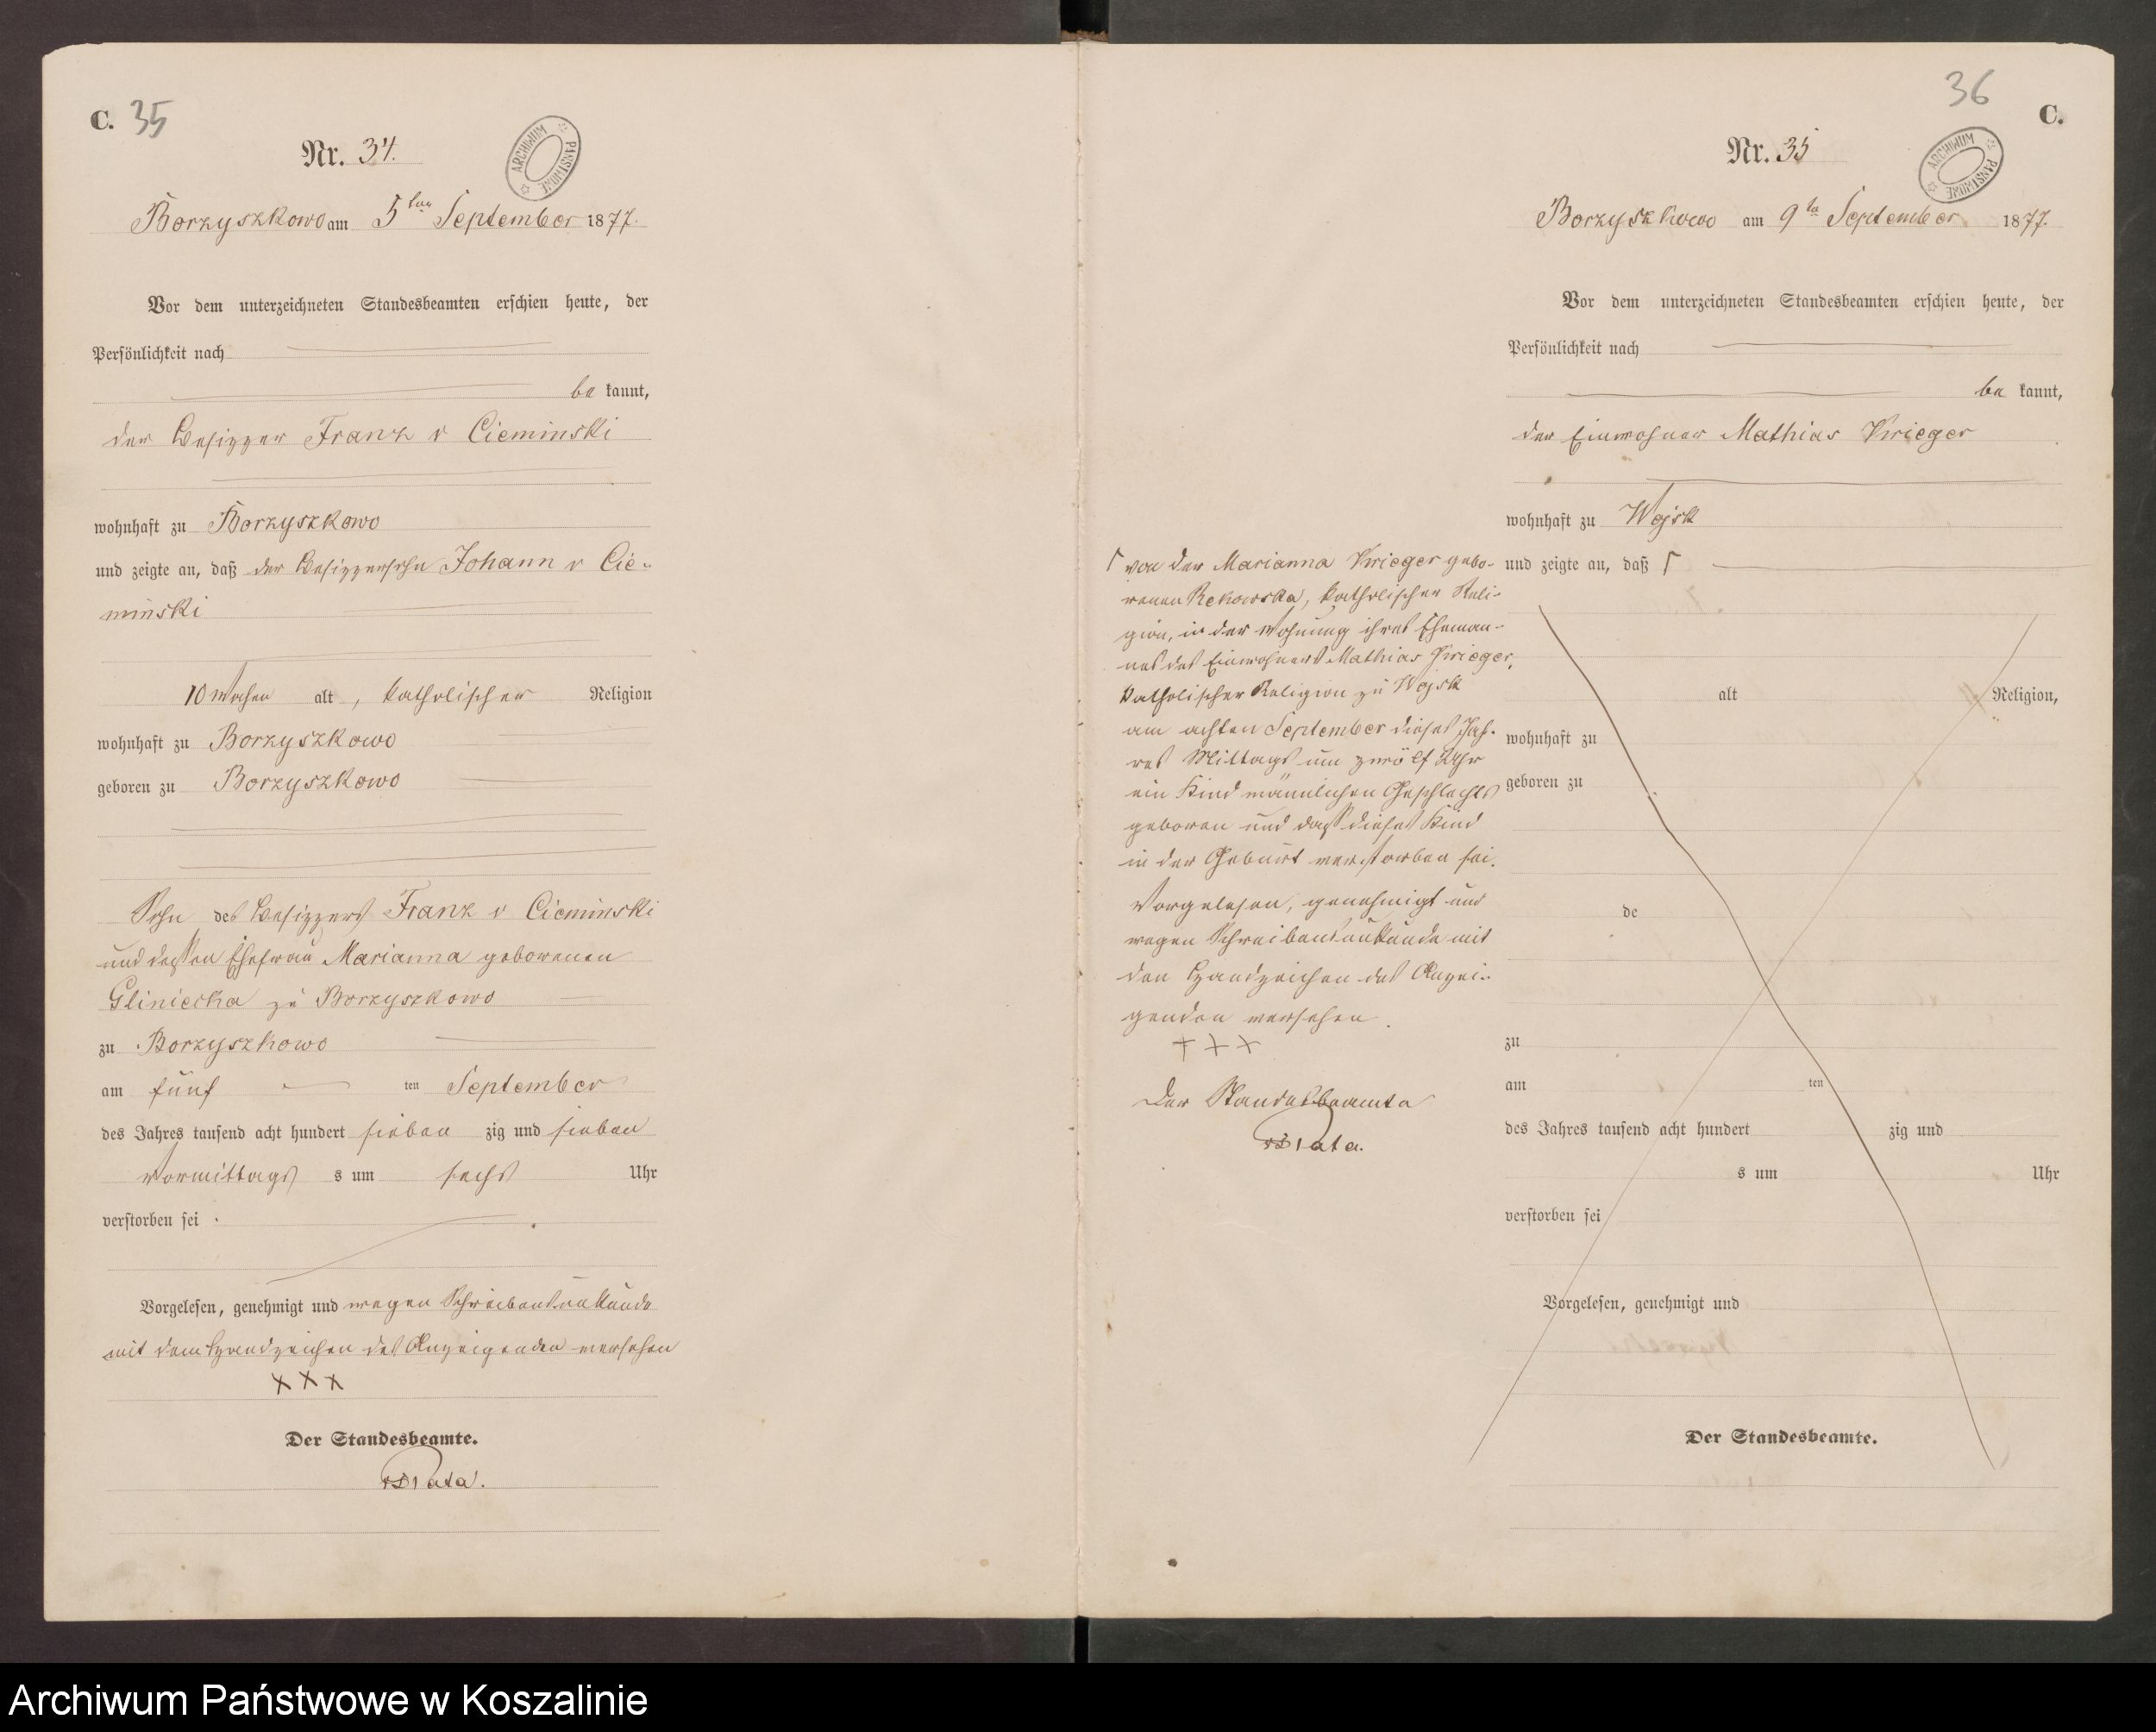 C. 35
Nr. 34.
ARCHIWUM PAŃSTWOWE
Borzyszkowo am 5ten September 1877.
Vor dem unterzeichneten Standesbeamten erschien heute, der
Persönlichkeit nach
be kannt,
der Besizzer Franz v Cieminski
wohnhaft zu Borzyszkowo
und zeigte an, daß der Besizzersohn Johann v Cie-
minski
10 Wochen alt, katholischer Religion
wohnhaft zu Borzyszkowo
geboren zu Borzyszkowo
Sohn des Besizzers Franz v Cieminski
und dessen Ehefrau Marianna geborenen
Gliniecka zu Borzyszkowo
zu Borzyszkowo
am fünf ten September
des Jahres tausend acht hundert sieben zig und sieben
Vormittags s um sechs Uhr
verstorben sei
Vorgelesen, genehmigt und wegen Schreibensunkunde
mit dem Handzeichen des Anzeigenden versehen
+++
Der Standesbeamte.
36
C.
Nr. 35
ARCHIWUM PAŃSTWOWE
Borzyszkowo am 9te September 1877.
Vor dem unterzeichneten Standesbeamten erschien heute, der
Persönlichkeit nach
be kannt,
der Einwohner Mathias Krieger
wohnhaft zu Wojsk
und zeigte an, daß Γ
Γ von der Marianna Krieger gebo-
renen Rekowska, katholischer Reli-
gion, in der Wohnung ihres Eheman-
nes des Einwohners Mathias Krieger,
katholischer Religion zu Wojsk
am achten September dieses Jah-
res Mittags um zwölf Uhr
ein Kind männlichen Geschlechts
geboren und dass dieses Kind
in der Geburt verstorben sei.
Vorgelesen, genehmigt und
wegen Schreibensunkunde mit
den Handzeichen des Anzei-
genden versehen.
+++
Der Standesbeamte
alt Religion,
wohnhaft zu
geboren zu
de
zu
am ten
des Jahres tausend acht hundert zig und
s um Uhr
verstorben sei
Vorgelesen, genehmigt und
Der Standesbeamte.
Archiwum Państwowe w Koszalinie